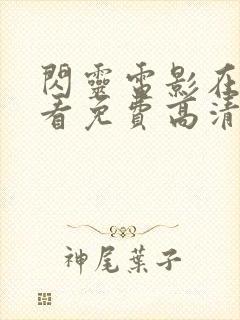 閃靈電影在
看免費高清
神尾葉子